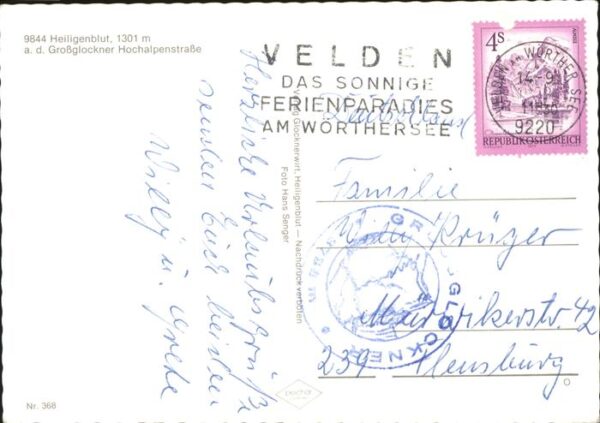 9844 Heiligenblut, 1301 m
a. d. Großglockner Hochalpenstraße
Herzliche Urlaubsgrüße
senden Euch beiden
Willy u. Grete
Verlag Glocknerwirt, Heiligenblut — Nachdruck verboten
Foto Hans Senger
VELDEN
DAS SONNIGE
FERIENPARADIES
AM WÖRTHERSEE
4S
REPUBLIK ÖSTERREICH
VELDEN AM WÖRTHER SEE
14.-9.
9220
Deutschland
Familie
Willy Krüger
42
239 Flensburg
GROSSGLOCKNER
Nr. 368